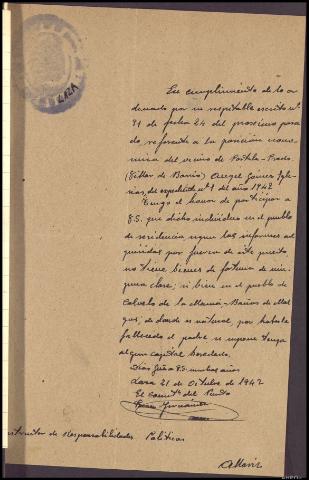 En cumplimiento de lo or
denado por su respetable escrito nº
31 de fecha 24 del proximo pasa
do, referente a la posición econo
mica del vecino de Portela-Prado
(Villar de Barrio) Angel Gómez Igle
sias, del expediente nº 1 del año 1942
Tengo el honor de participar a
V.S. que dicho individuo en el pueblo
de residencia, segun los informes ad
quiridos por fuerza de este puesto,
no tiene bienes de fortuna de nin
guna clase; si bien en el pueblo de
de la Baños de Mol
gas; de donde es natural, por haber
fallecido el padre se supone tenga
algun capital heredado.
Dios gue a V.S. muchos años
Laza 21 de Octubre de 1942
El Comte del Puesto
Instructor de Responsabilidades Politicas
Allariz